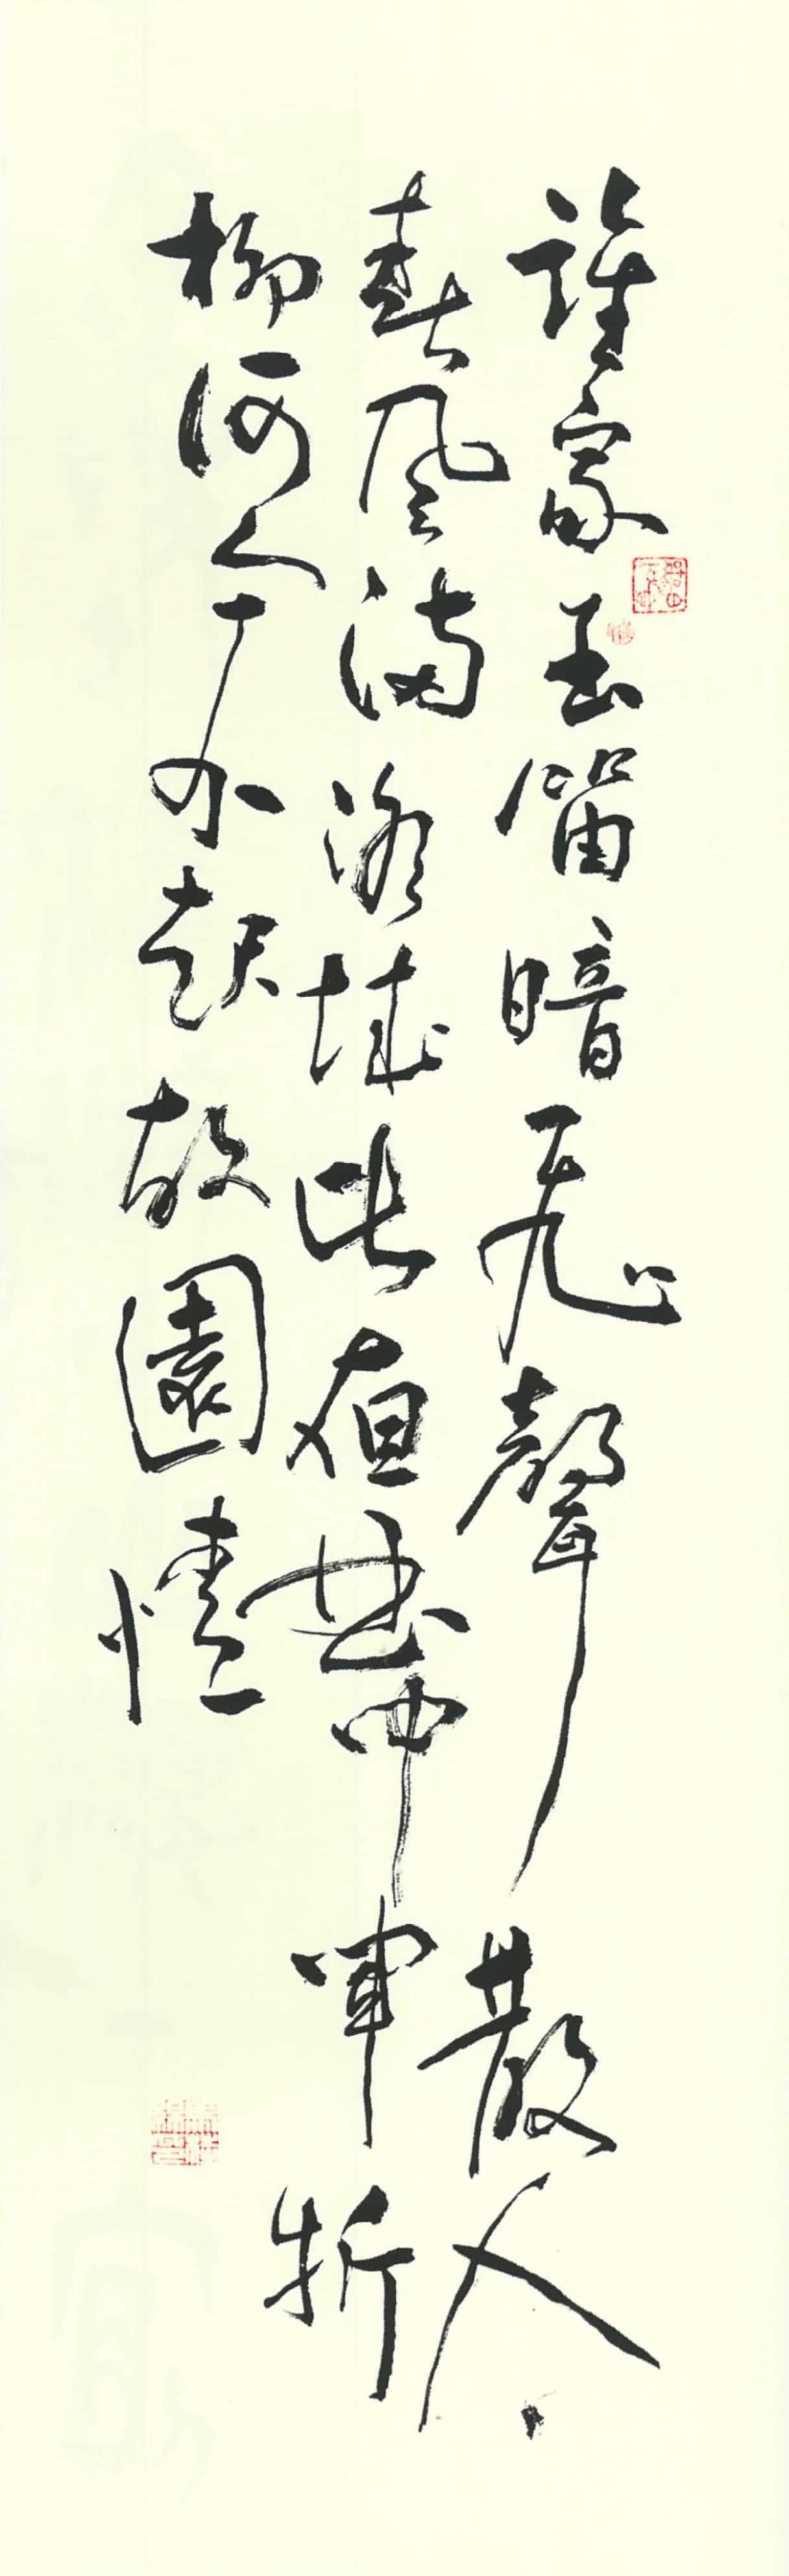 誰家玉笛暗飛聲散入
春風滿洛城此夜曲中聞折
柳何人不起故園情